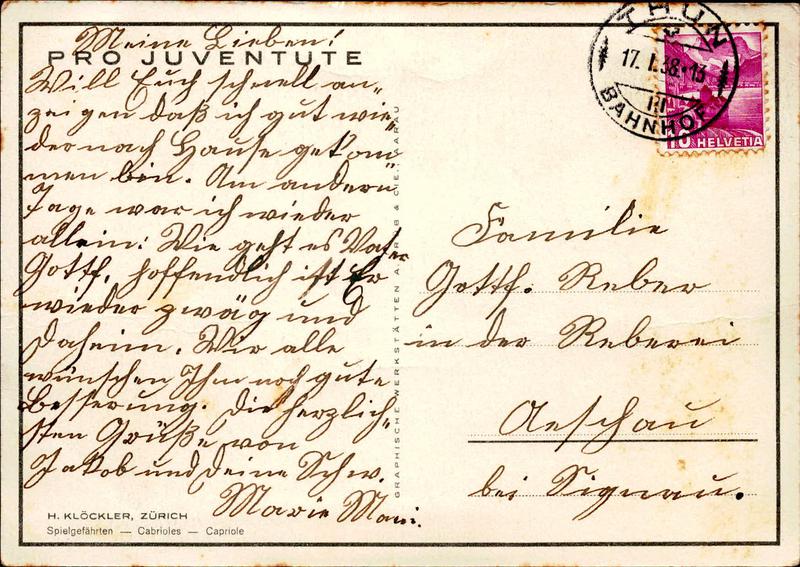 PRO JUVENTUTE
Meine Lieben!
Will Euch schnell an-
zeigen daß ich gut wie-
der nach Hause gekom
men bin. Am andern
Tage war ich wieder
allein. Wie geht es Vater
Gottf. hoffendlich ist Er
wieder zwäg und
Daheim. Wir alle
wünschen Ihm noch gute
Besserung. Die herzlich-
sten Grüße von
Jakob und Deine Schw.
Marie
H. KLÖCKLER, ZÜRICH
Spielgefährten — Cabrioles — Capriole
GRAPHISCHE WERKSTÄTTEN A. & CIE., AARAU
THUN
17. I. 38. 13
BAHNHOF
10 HELVETIA
Familie
Gottf. Reber
in der Reberei
Aeschau
bei Signau.